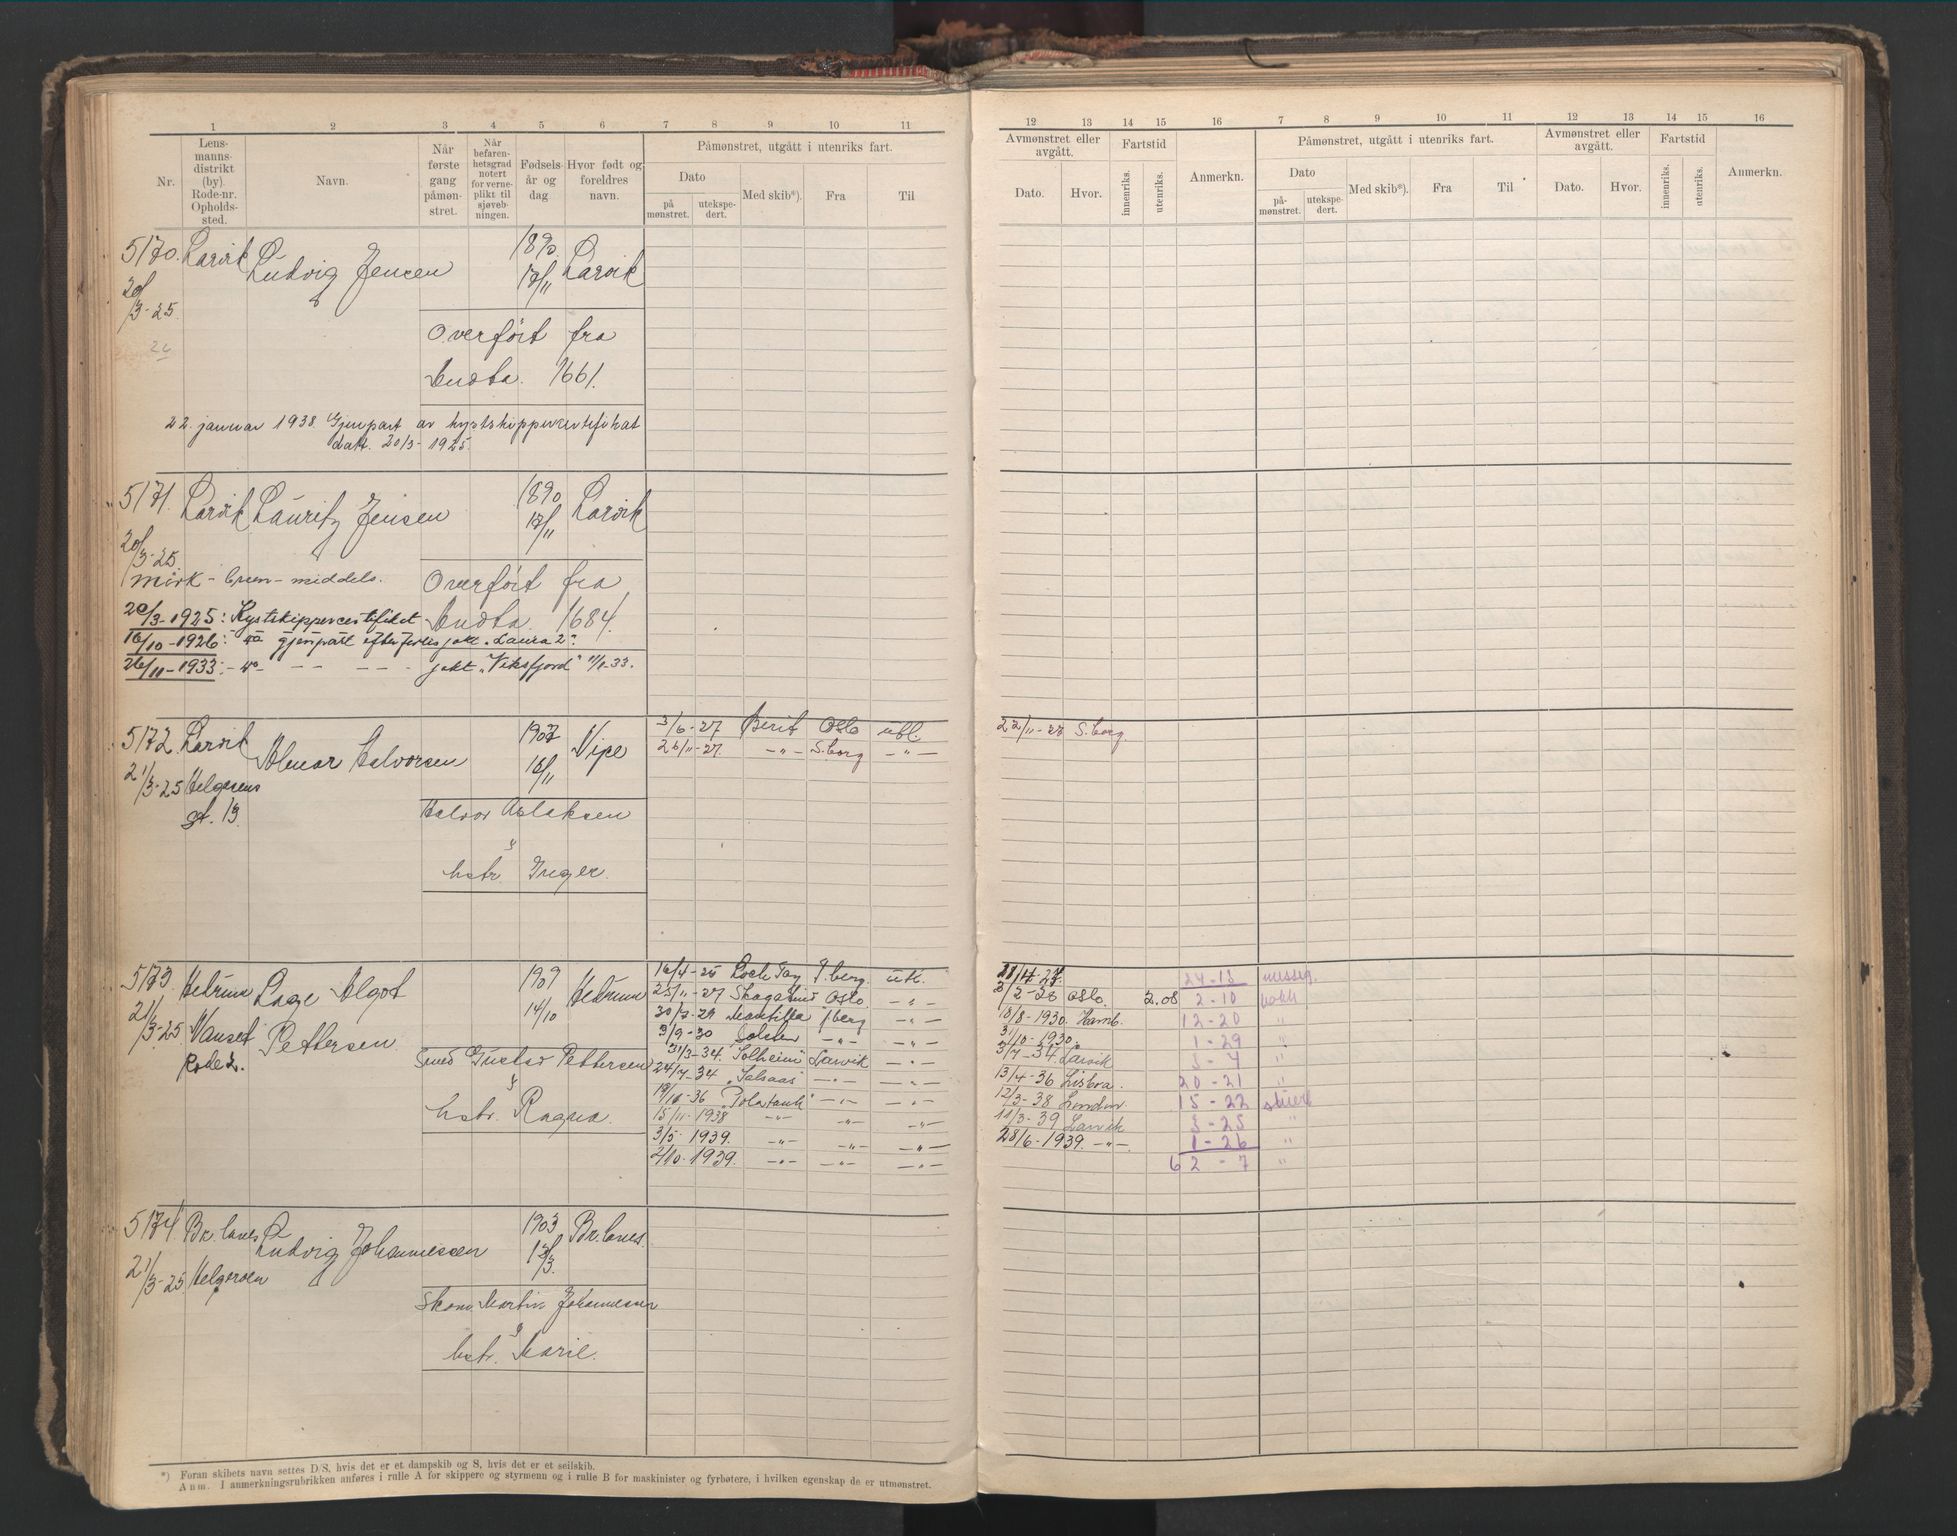 1 2 3 4 5 6 7 8 9 10 11
Nr.
Lens-
manns-
distrikt
(by).
Rode-nr.
Opholds-
sted.
Navn.
Når
første
gang
påmøn-
stret.
Når
befaren-
hetsgrad
notert
for verne-
plikt til
sjøveb-
ningen.
Fødsels-
år og
dag.
Hvor født og
foreldres
navn.
Påmønstret, utgått i utenriks fart.
Dato
på
mønstret.
utekspe-
dert.
Med skib*).
Fra
Til
5170. Larvik Ludvig Jensen 1890 17/11 Larvik
20/3-25.
Overført fra
1661.
22. januar 1938. Gjenpart av kystskippercertifikat
dat. 20/3-1925.
5171. Larvik Lauritz Jensen 1890 17/11 Larvik
20/3-25.
mørk - middels.
Overført fra
1684.
20/3-1925: Kystskippercertifikat
16/10-1926: gjenpart efter forlis jakt "Laura 2"
26/11-1933: jakt "Viksfjord" 11/1-33.
5172 Larvik Halvorsen 1907 16/11 Vipe
21/3-25 Helgesens
gt. 13.
Halvor Aslaksen
&
hstr. Inger.
3/6-27 Berit Oslo utl.
26/11-27. -"- S.borg -"-
5173 Hedrum Lage Algot 1909 14/10 Hedrum
21/3-25 Nanset Pettersen
Rode 2.
Smed Gustav Pettersen
&
hstr. Ragna.
16/4-25 Loch Tay F.berg. utl.
25/11-27 Oslo. -"-
30/7-29 f.berg -"-
3/9-30 Solsten -"- -"-
31/3-34. "Solheim" Larvik -"-
24/7-34 "Solsaas" -"- -"-
19/10-36 "Polatank" -"- -"-
15/11-1938 -"- -"- -"-
3/5-1939. -"- -"- -"-
2/10-1939. -"- -"- -"-
5174 Br.lanes Ludvig Johannessen 1903 Br.lanes.
21/3-25 Helgeroen
Martin Johannessen
&
hstr. Marie.
*) Foran skibets navn settes D/S, hvis det er et dampskib og S, hvis det er et seilskib.
Anm. I anmerkningsrubrikken anføres i rulle A for skippere og styrmenn og i rulle B for maskinister og fyrbøtere, i hvilken egenskap de er utmønstret.
12 13 14 15 16 7 8 9 10 11 12 13 14 15 16
Avmønstret eller
avgått.
Dato.
Hvor.
Fartstid
innenriks.
utenriks.
Anmerkn.
Påmønstret, utgått i utenriks fart.
Dato
på-
mønstret.
utekspe-
dert.
Med skib*).
Fra
Til
Avmønstret eller
avgått.
Dato.
Hvor.
Fartstid
innenriks.
utenriks.
Anmerkn.
22/11-27 S.borg.
24-13 messg.
2/2-28 Oslo. 2.08 2-10 kokk
18/8-1930. Hamb. 12-20 "
31/10-1930. 1-29 "
3/7-34. Larvik 3-4 "
13/4-36 Lisboa. 20-21 "
12/3-38 London. 15-22 stuert
11/3-39 Larvik 3-25 "
28/6-1939. -"- 1-26 "
62-7 "